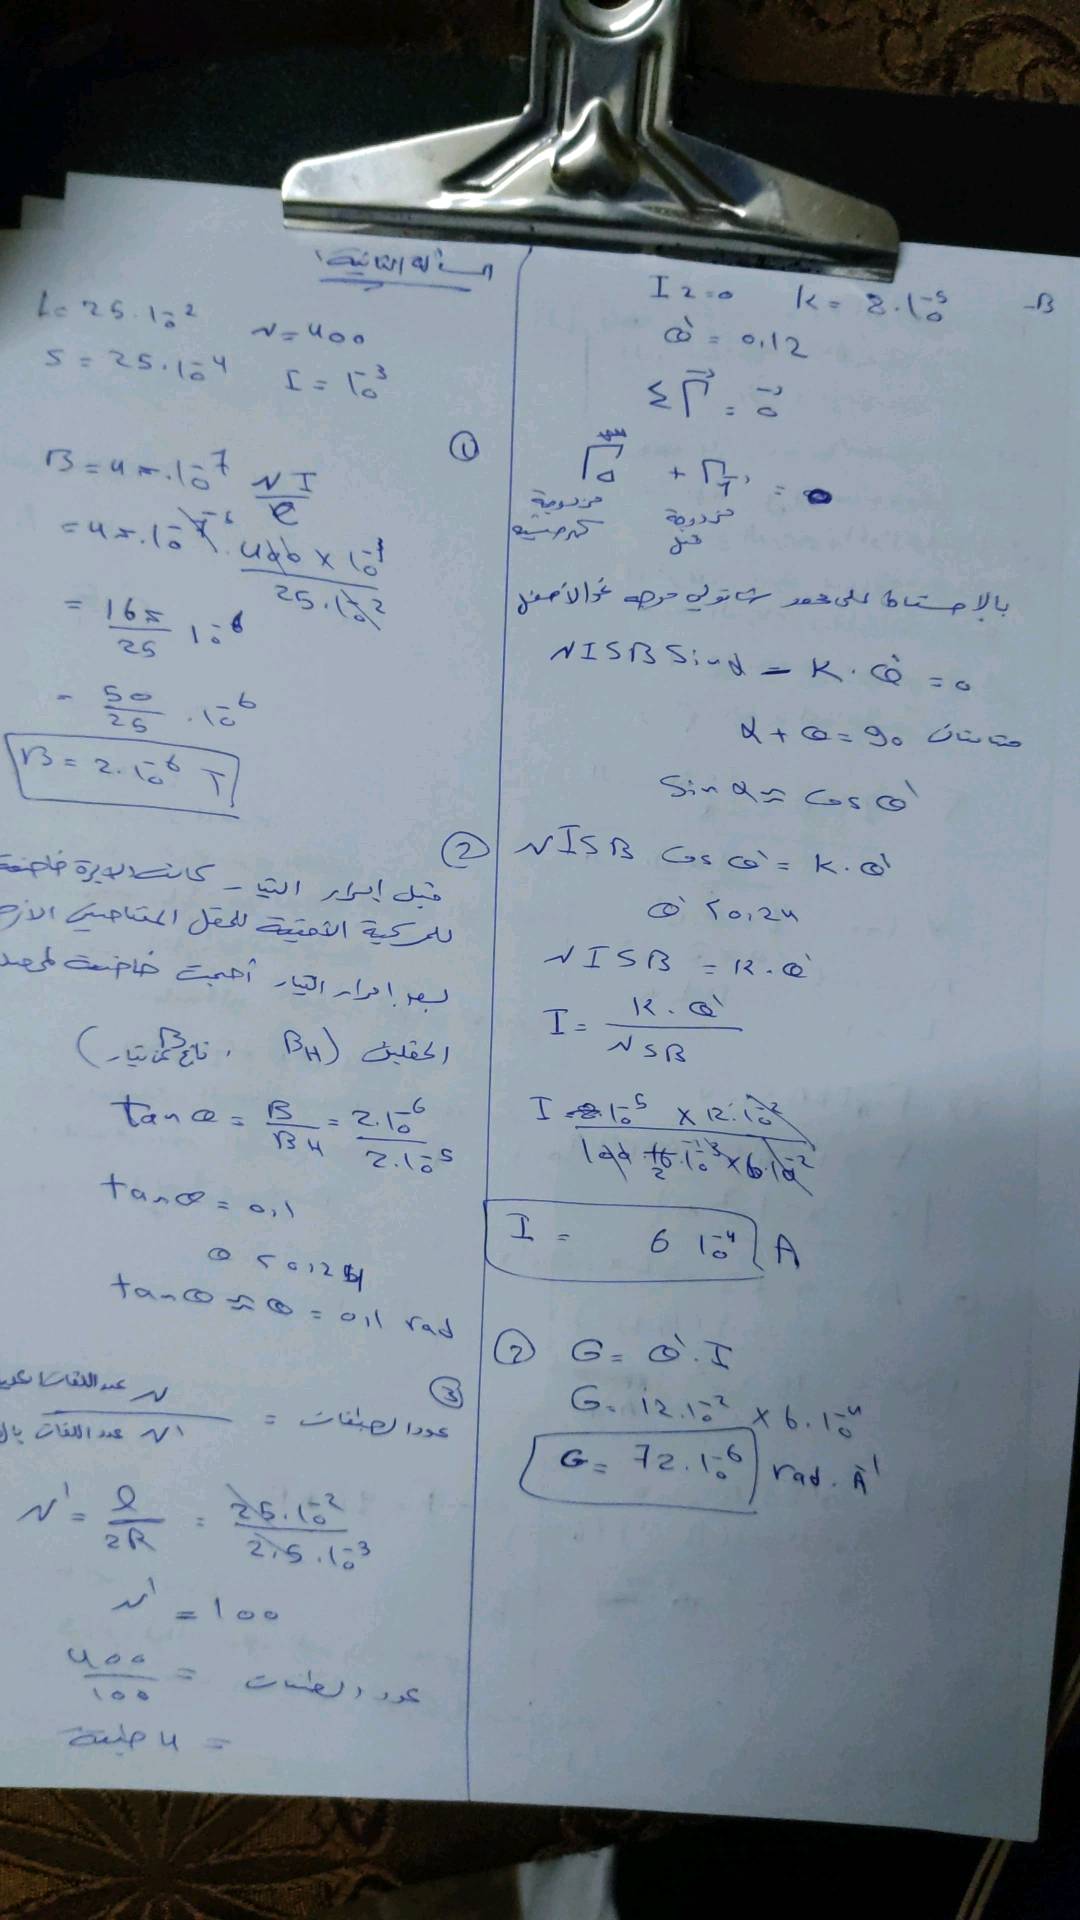 المسألة الثانية:
L = 25.10^-2
N = 400
S = 25.10^-4
I = 10^-3
①
B = 4π.10^-7 NI/l
= 4π.10^-7 . 400 × 10^-3 / 25.10^-2
= 16π/25 10^-6
= 50/25 . 10^-6
B = 2.10^-6 T
②
قبل إمرار التيار كانت الإبرة خاضعة
للمركبة الأفقية للحقل المغناطيسي
بعد إمرار التيار أصبحت خاضعة
الحقلين (B_H , B ناتج عن تيار)
tan θ = B/B_H = 2.10^-6 / 2.10^-5
tan θ = 0,1
θ < 0,24
tan θ ≈ θ = 0,1 rad
③
عدد الطبقات = N عدد اللفات / N' عدد اللفات
N' = l/2R = 25.10^-2 / 2,5.10^-3
N' = 100
عدد الطبقات = 400/100
= 4 طبقة
B-
I 2=0 K = 8.10^-5
θ' = 0,12
ΣΓ = 0
Γ + Γ' = 0
مزدوجة كهرطيسية
مزدوجة فتل
بالإسقاط على محور شاقولي موجه نحو الأعلى
NISB sin α − K.θ' = 0
α + θ = 90 متتامتان
sin α = cos θ'
NISB cos θ' = K.θ'
θ' < 0,24
NISB = K.θ'
I = K.θ' / NSB
I = 8.10^-5 × 12.10^-2 / 100 16.10^-3 × 6.10^-2
I = 6 10^-4 A
②
G = θ'.I
G = 12.10^-2 × 6.10^-4
G = 72.10^-6 rad.A^-1